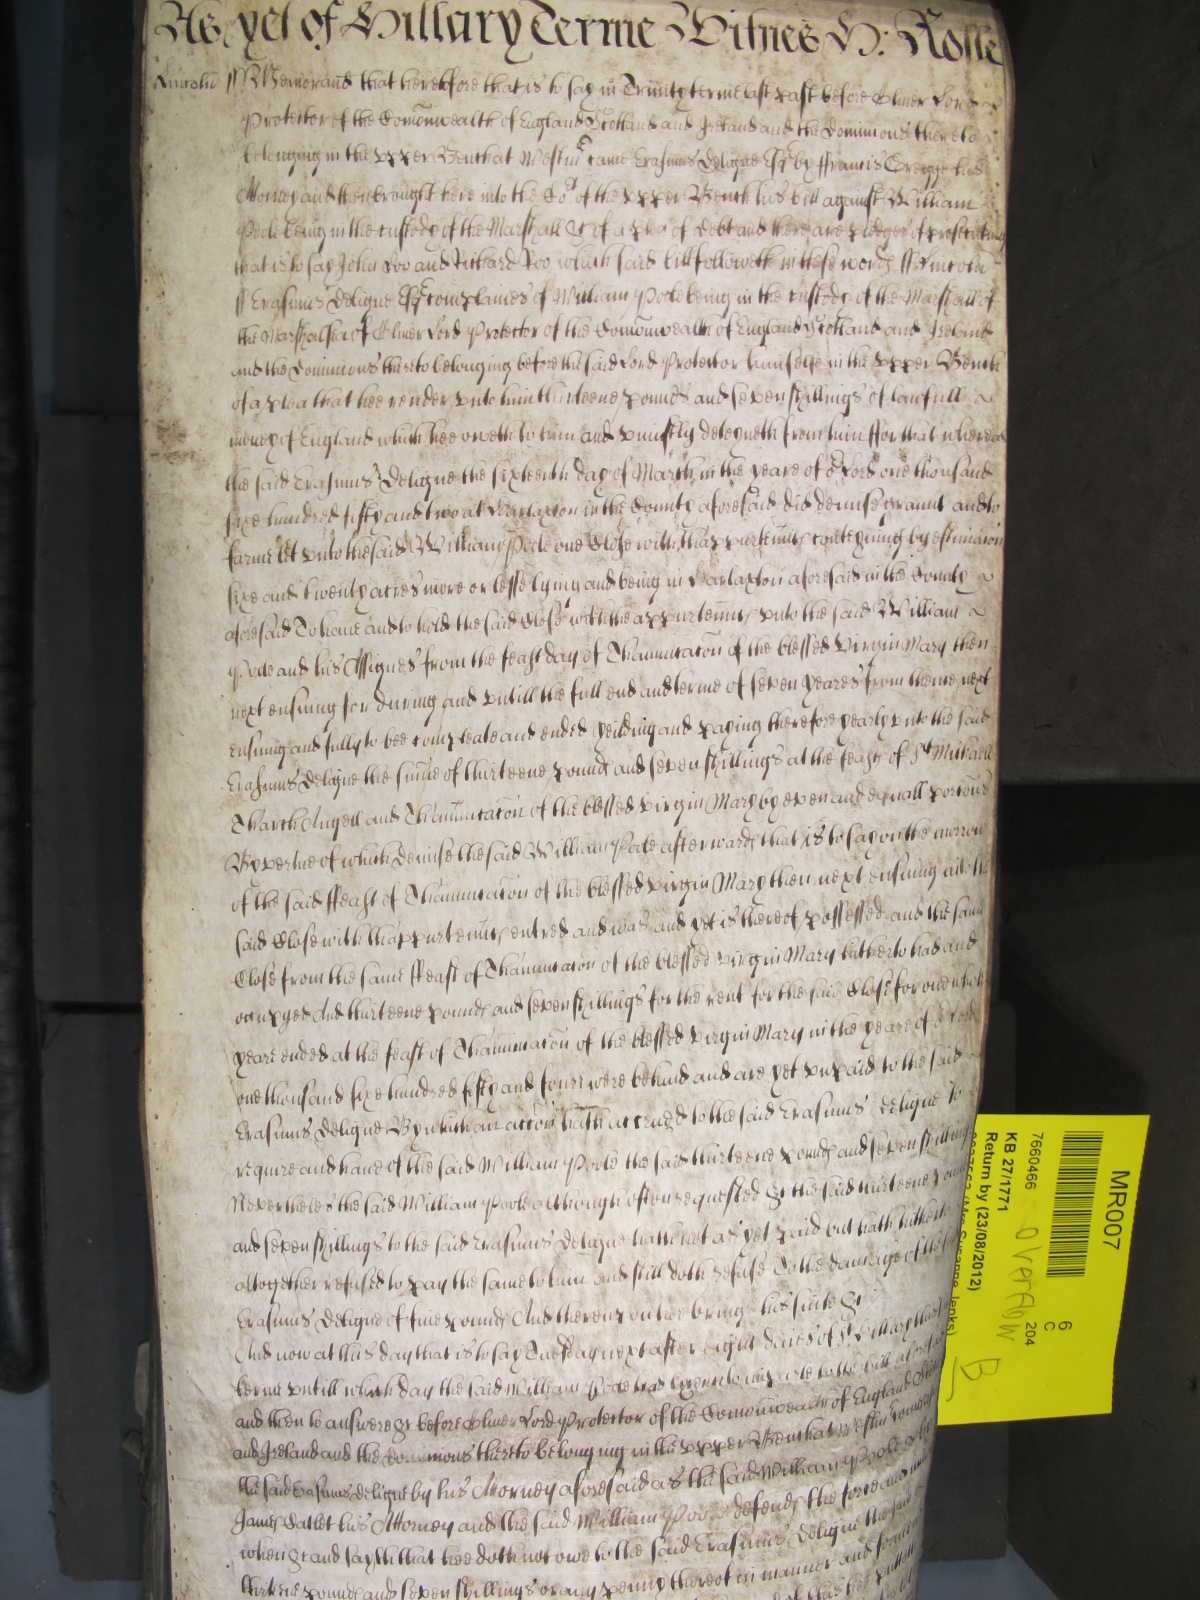 As yet of Hillary Terme Witnes H: Rolle
Lincoln ss Memorand that heretofore that is to say in Trinity terme last past before Oliver Lord
Protector of the Comonwealth of England Scotland and Ireland and the Dominions thereto
belonging in the upper Bench at Westm came Erasmus Deligne Esqr by ffrancis Gregge his
Attorney and then brought here into the Cort of the upper Bench his bill against William
Poole being in the custody of the Marshall &c of a plea of Debt and there are pledges of prosecuting
that is to say John Doo and Richard Roo which said bill followeth in these words ss Lincoln
ss Erasmus Deligne Esqr complaines of William Poole being in the custody of the Marshall of
the Marshalsea of Oliver Lord Protector of the Comonwealth of England Scotland and Ireland
and the Dominions thereto belonging before the said Lord Protector himselfe in the upper Bench
of a plea that hee render unto him thirteene pounds and seven shillings of lawfull
money of England which hee oweth to him and uniustly deteyneth from him ffor that whereas
the said Erasmus Deligne the sixteenth day of March in the yeare of or Lord one thousand
sixe hundred fifty and two at Harlaxton in the County aforesaid did demise graunt and to
farme let unto the said William Poole one Close with thappurtenncs conteyning by estimacon
sixe and twenty acres more or lesse lying and being in Harlaxton aforesaid in the County
aforesaid To haue and to hold the said Close with the appurtenncs unto the said William
Poole and his Assignes from the feast day of Thannunciacon of the blessed Virgin Mary then
next ensuing for during and untill the full end and terme of seven yeares from thence next
ensuing and fully to bee compleate and ended yeilding and paying therefore yearly unto the said
Erasmus Deligne the sume of thirteene pounds and seven shillings at the feasts of St Michaell
Tharchangell and Thannunciacon of the blessed virgin Mary by even and equall porcons
By vertue of which demise the said William Poole afterwards that is to say on the morrow
of the said ffeast of Thannunciacon of the blessed virgin Mary then next ensuing into the
said Close with thappurtenncs entred and was and yet is thereof possessed and the same
Close from the same ffeast of Thannunciacon of the blessed virgin Mary hitherto had and
occupyed And thirteene pounds and seven shillings for the rent for the said Close for one whole
yeare ended at the feast of Thannunciacon of the blessed virgin Mary in the yeare of or Lord
one thousand sixe hundred fifty and foure were behind and are yet unpaid to the said
Erasmus Deligne By which an accon hath accrued to the said Erasmus Deligne To
require and haue of the said William Poole the said thirteene pounds and seven shillings
Neverthelesse the said William Poole although often requested &c the said thirteene pounds
and seven shillings to the said Erasmus Deligne hath not as yet paid but hath hitherto
altogether refused to pay the same to him and still doth refuse To the damage of the said
Erasmus Deligne of fiue pounds And thereupon hee brings his suite &c
And now at this day that is to say Tuesday next after eight daies of St Hillary this
terme untill which day the said William Poole had licence to imparle to the bill aforesaid
and then to answere &c before Oliver Lord Protector of the Comonwealth of England Scotland
and Ireland and the dominions thereto belonging in the upper Bench at Westm cometh
the said Erasmus Deligne by his Attorney aforesaid as the said William Poole by
James Catlet his Attorney and the said William Poole defends the force and
when &c and sayth that hee doth not owe to the said Erasmus Deligne the said
thirteene pounds and seven shillings or any penny thereof in manner and forme
MR007
6
C
204
7660466
KB 27/1771
overflow
B
Return by (23/08/2012)
(Mrs Susanne Jenks)